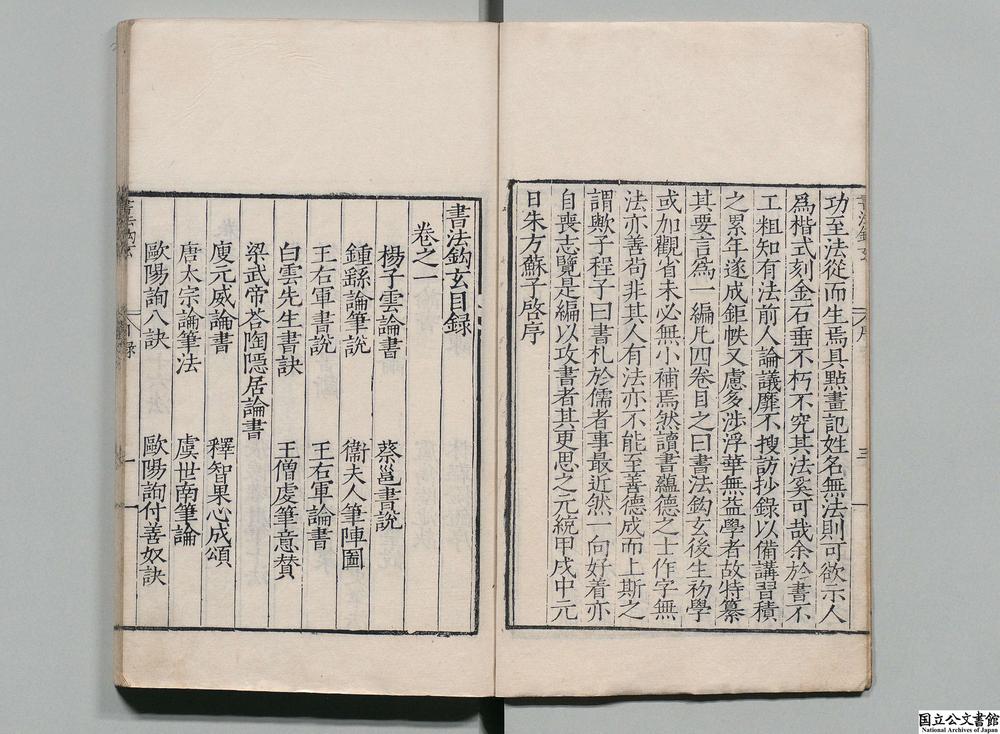 功至法從而生焉具點畫記姓名無法則可欲示人
爲楷式刻金石垂不朽不究其法奚可哉余於書不
工粗知有法前人論議靡不搜訪抄錄以備講習積
之累年遂成鉅帙又慮多涉浮華無益學者故特纂
其要言爲一編凡四卷目之曰書法鈎玄後生初學
或加觀省未必無小補焉然讀書蘊德之士作字無
法亦善苟非其人有法亦不能至善德成而上斯之
謂歟子程子曰書札於儒者事最近然一向好着亦
自喪志覽是編以攻書者其更思之元統甲戌中元
日朱方蘇子啓序
書法鈎玄目録
卷之一
楊子雲論書 蔡邕書説
鍾繇論筆説 衞夫人筆陣圖
王右軍書説 王右軍論書
白雲先生書訣 王僧虔筆意賛
梁武帝荅陶隱居論書
庾元威論書 釋智果心成頌
唐太宗論筆法 虞世南筆論
歐陽詢八訣 歐陽詢付善奴訣
国立公文書館
National Archives of Japan